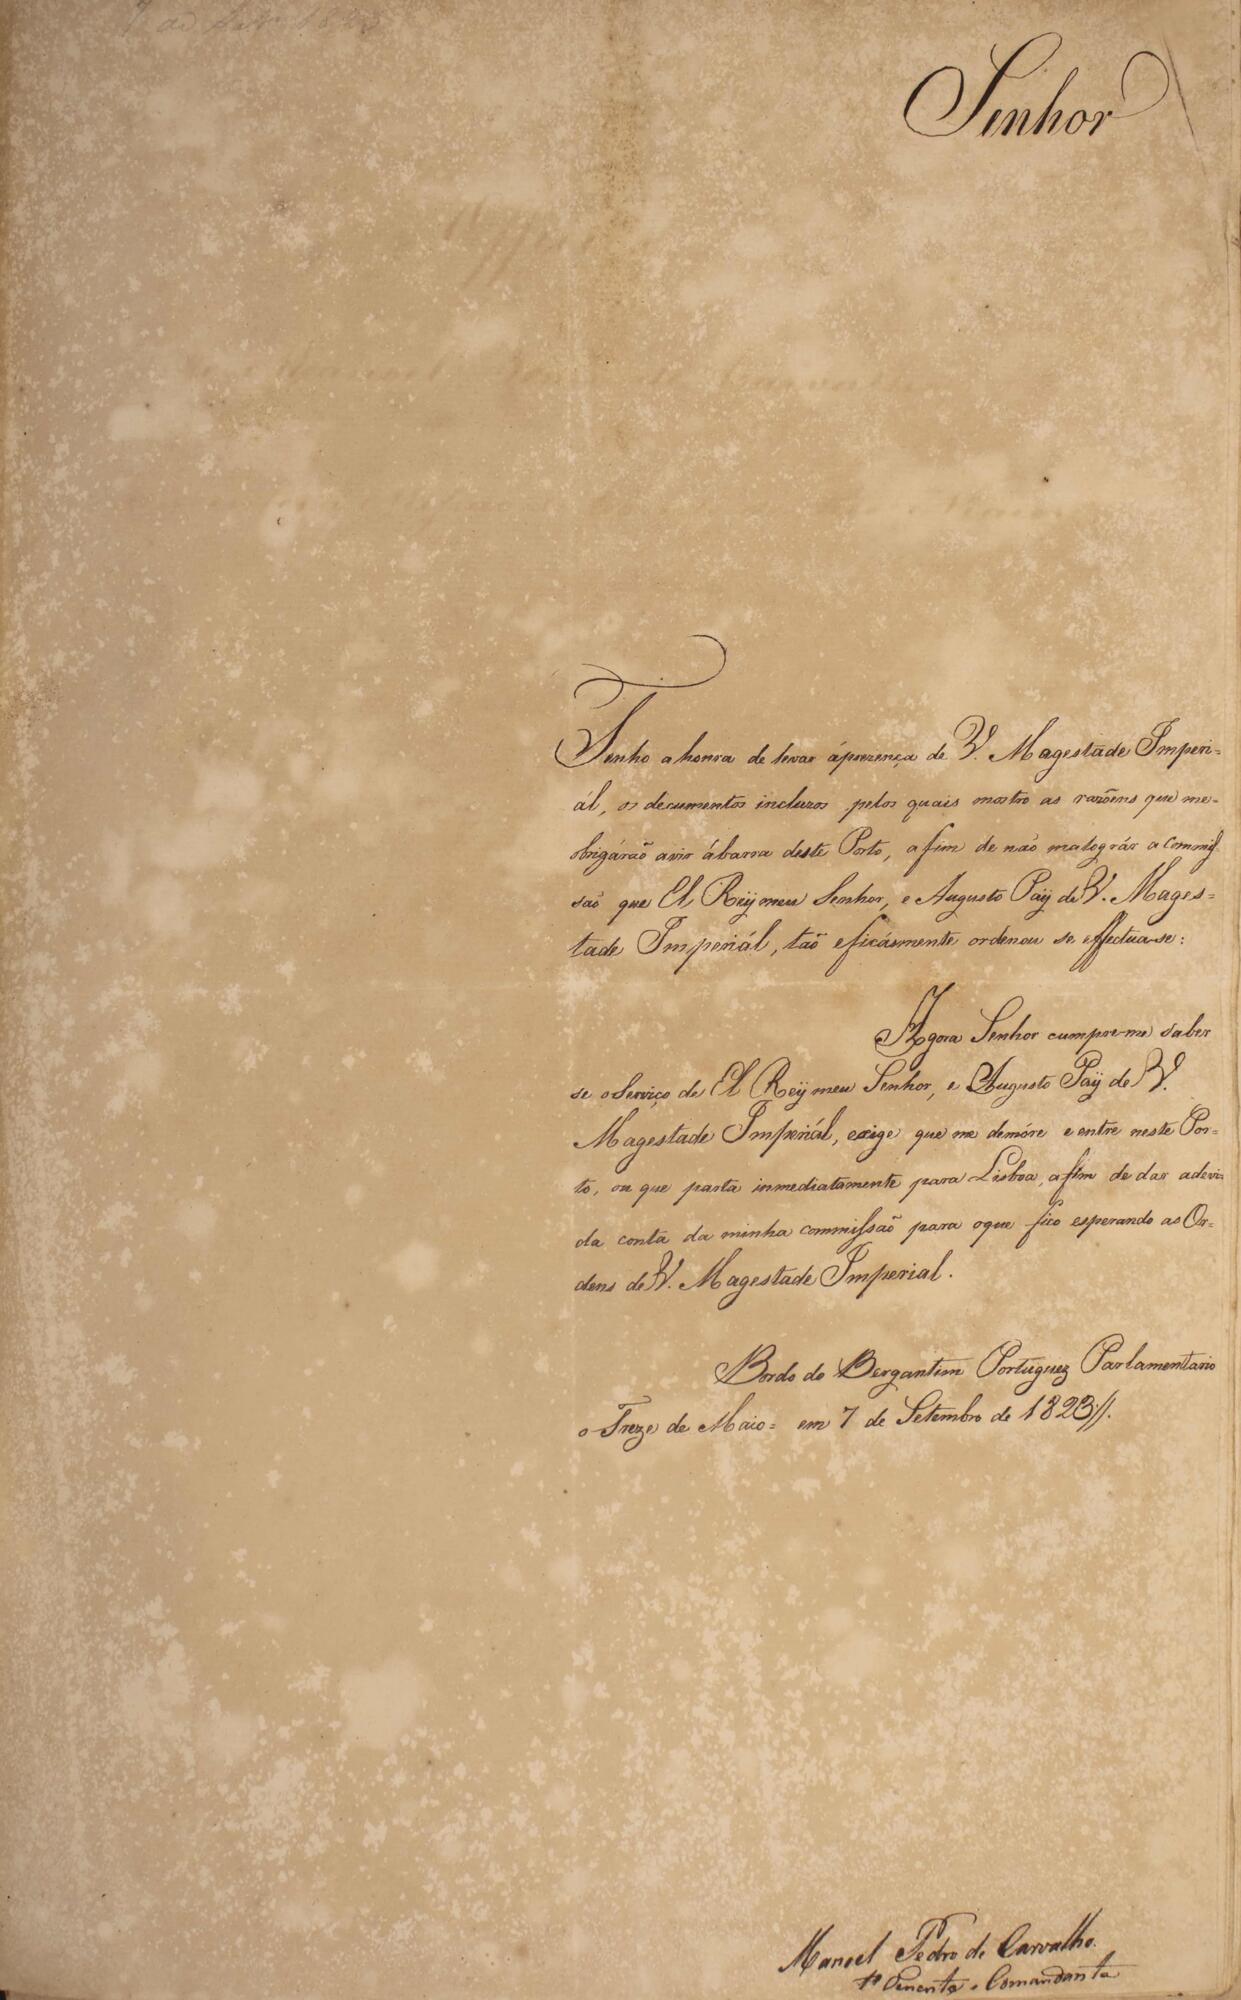 7 de Setr. 1823
Senhor
Tenho a honra de levar áprezença de V. Magestade Imperi=
ál, os documentos incluzos pelos quais mostro as razoẽns que me=
obrigáraõ avir ábarra deste Porto, afim de naõ malográr a Commis=
saõ que El Reÿ meu Senhor, e Augusto Paÿ de V. Mages=
tade Imperiál, taõ eficásmente ordenou se effectua-se:
Agora Senhor cumpre-me saber
se o Serviço de El Reÿ meu Senhor, e Augusto Paÿ de V.
Magestade Imperiál, exige que me demóre e entre neste Por=
to, ou que parta inmediatamente para Lisboa, afim de dar adevi=
da conta da minha commissaõ para oque fico esperando as Or=
dens de V. Magestade Imperial.
Bordo do Bergantim Portuguez Parlamentario
o Treze de Maio= em 7 de Setembro de 1823//.
Manoel Pedro de Carvalho.
1º Tenente e Comandante